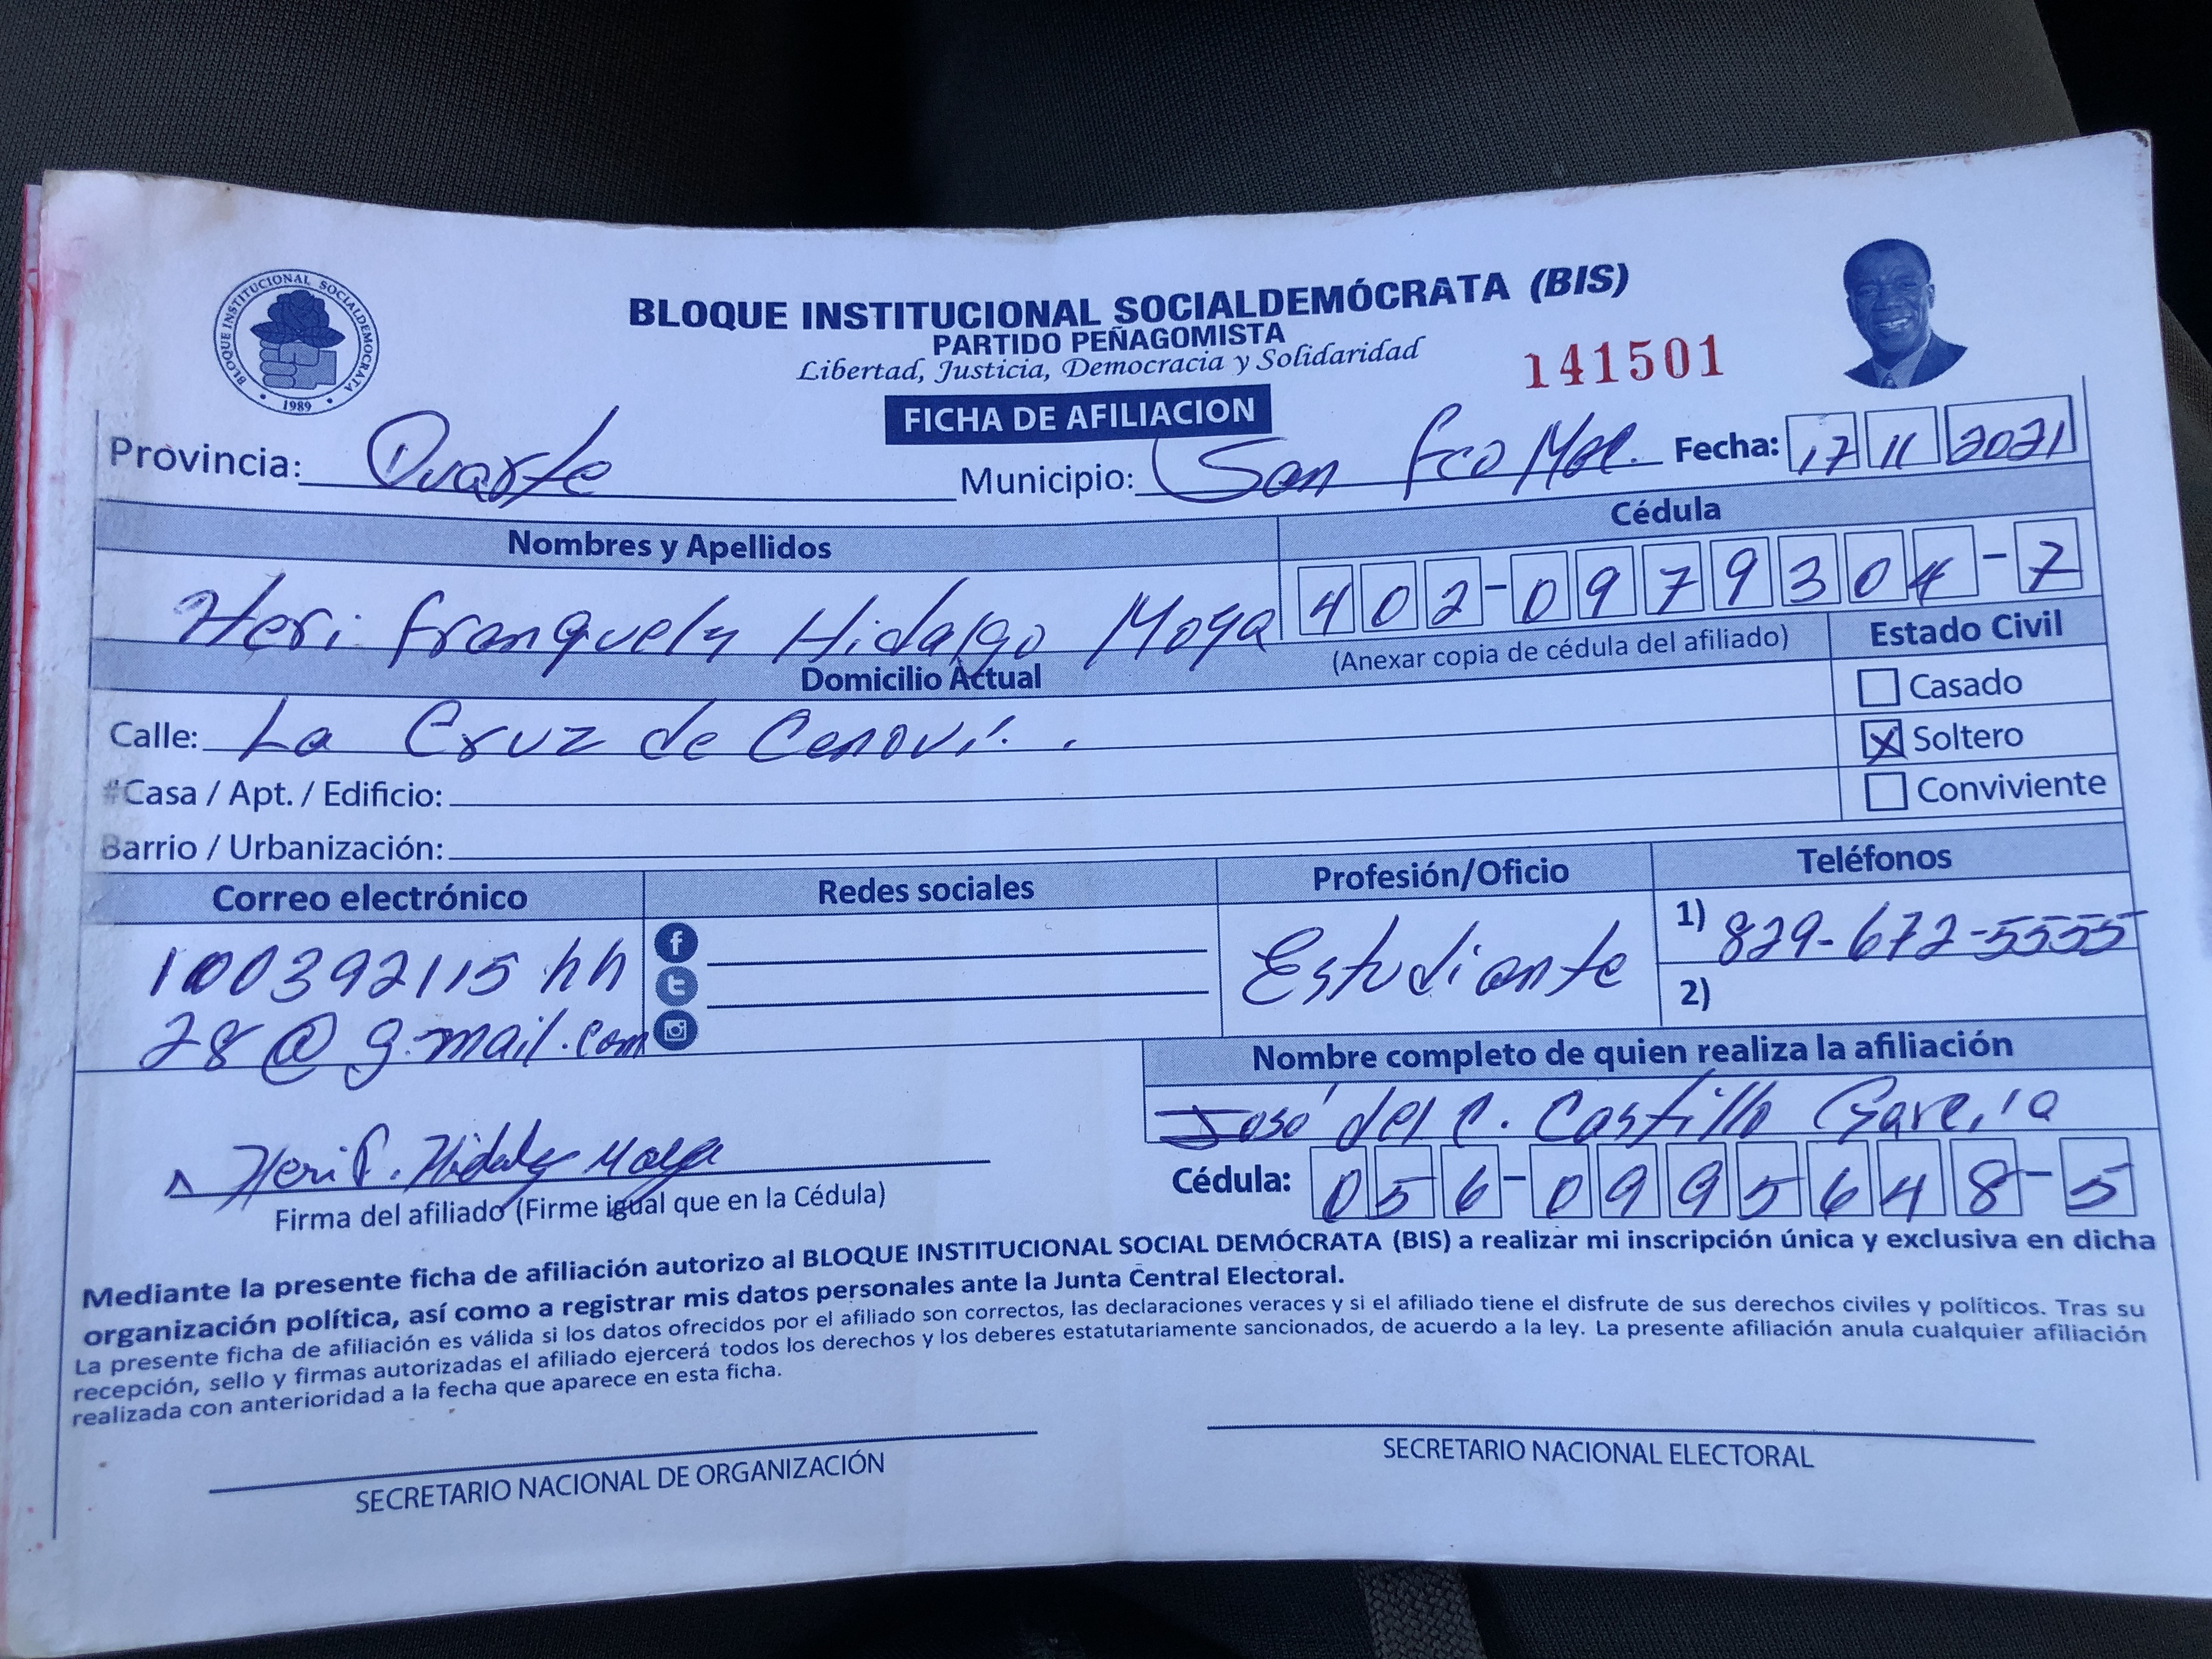 BLOQUE INSTITUCIONAL SOCIALDEMOCRATA
1989
BLOQUE INSTITUCIONAL SOCIALDEMÓCRATA (BIS)
PARTIDO PEÑAGOMISTA
Libertad, Justicia, Democracia y Solidaridad
141501
FICHA DE AFILIACION
Provincia: Duarte Municipio: San Fco Mac. Fecha: 17 11 2021
Nombres y Apellidos Cédula
Heri franquely Hidalgo Moya 402-0979304-7
(Anexar copia de cédula del afiliado) Estado Civil
Domicilio Actual
Casado
Calle: La Cruz de Cenoví.
Soltero
#Casa / Apt. / Edificio:
Conviviente
Barrio / Urbanización:
Correo electrónico Redes sociales Profesión/Oficio Teléfonos
100392115 hh Estudiante 1) 829-672-5555
28@g.mail.com 2)
Nombre completo de quien realiza la afiliación
José del C. Castillo García
Heri F. Hidalgo Moya
Cédula: 056-0995648-5
Firma del afiliado (Firme igual que en la Cédula)
Mediante la presente ficha de afiliación autorizo al BLOQUE INSTITUCIONAL SOCIAL DEMÓCRATA (BIS) a realizar mi inscripción única y exclusiva en dicha
organización política, así como a registrar mis datos personales ante la Junta Central Electoral.
La presente ficha de afiliación es válida si los datos ofrecidos por el afiliado son correctos, las declaraciones veraces y si el afiliado tiene el disfrute de sus derechos civiles y políticos. Tras su
recepción, sello y firmas autorizadas el afiliado ejercerá todos los derechos y los deberes estatutariamente sancionados, de acuerdo a la ley. La presente afiliación anula cualquier afiliación
realizada con anterioridad a la fecha que aparece en esta ficha.
SECRETARIO NACIONAL DE ORGANIZACIÓN SECRETARIO NACIONAL ELECTORAL